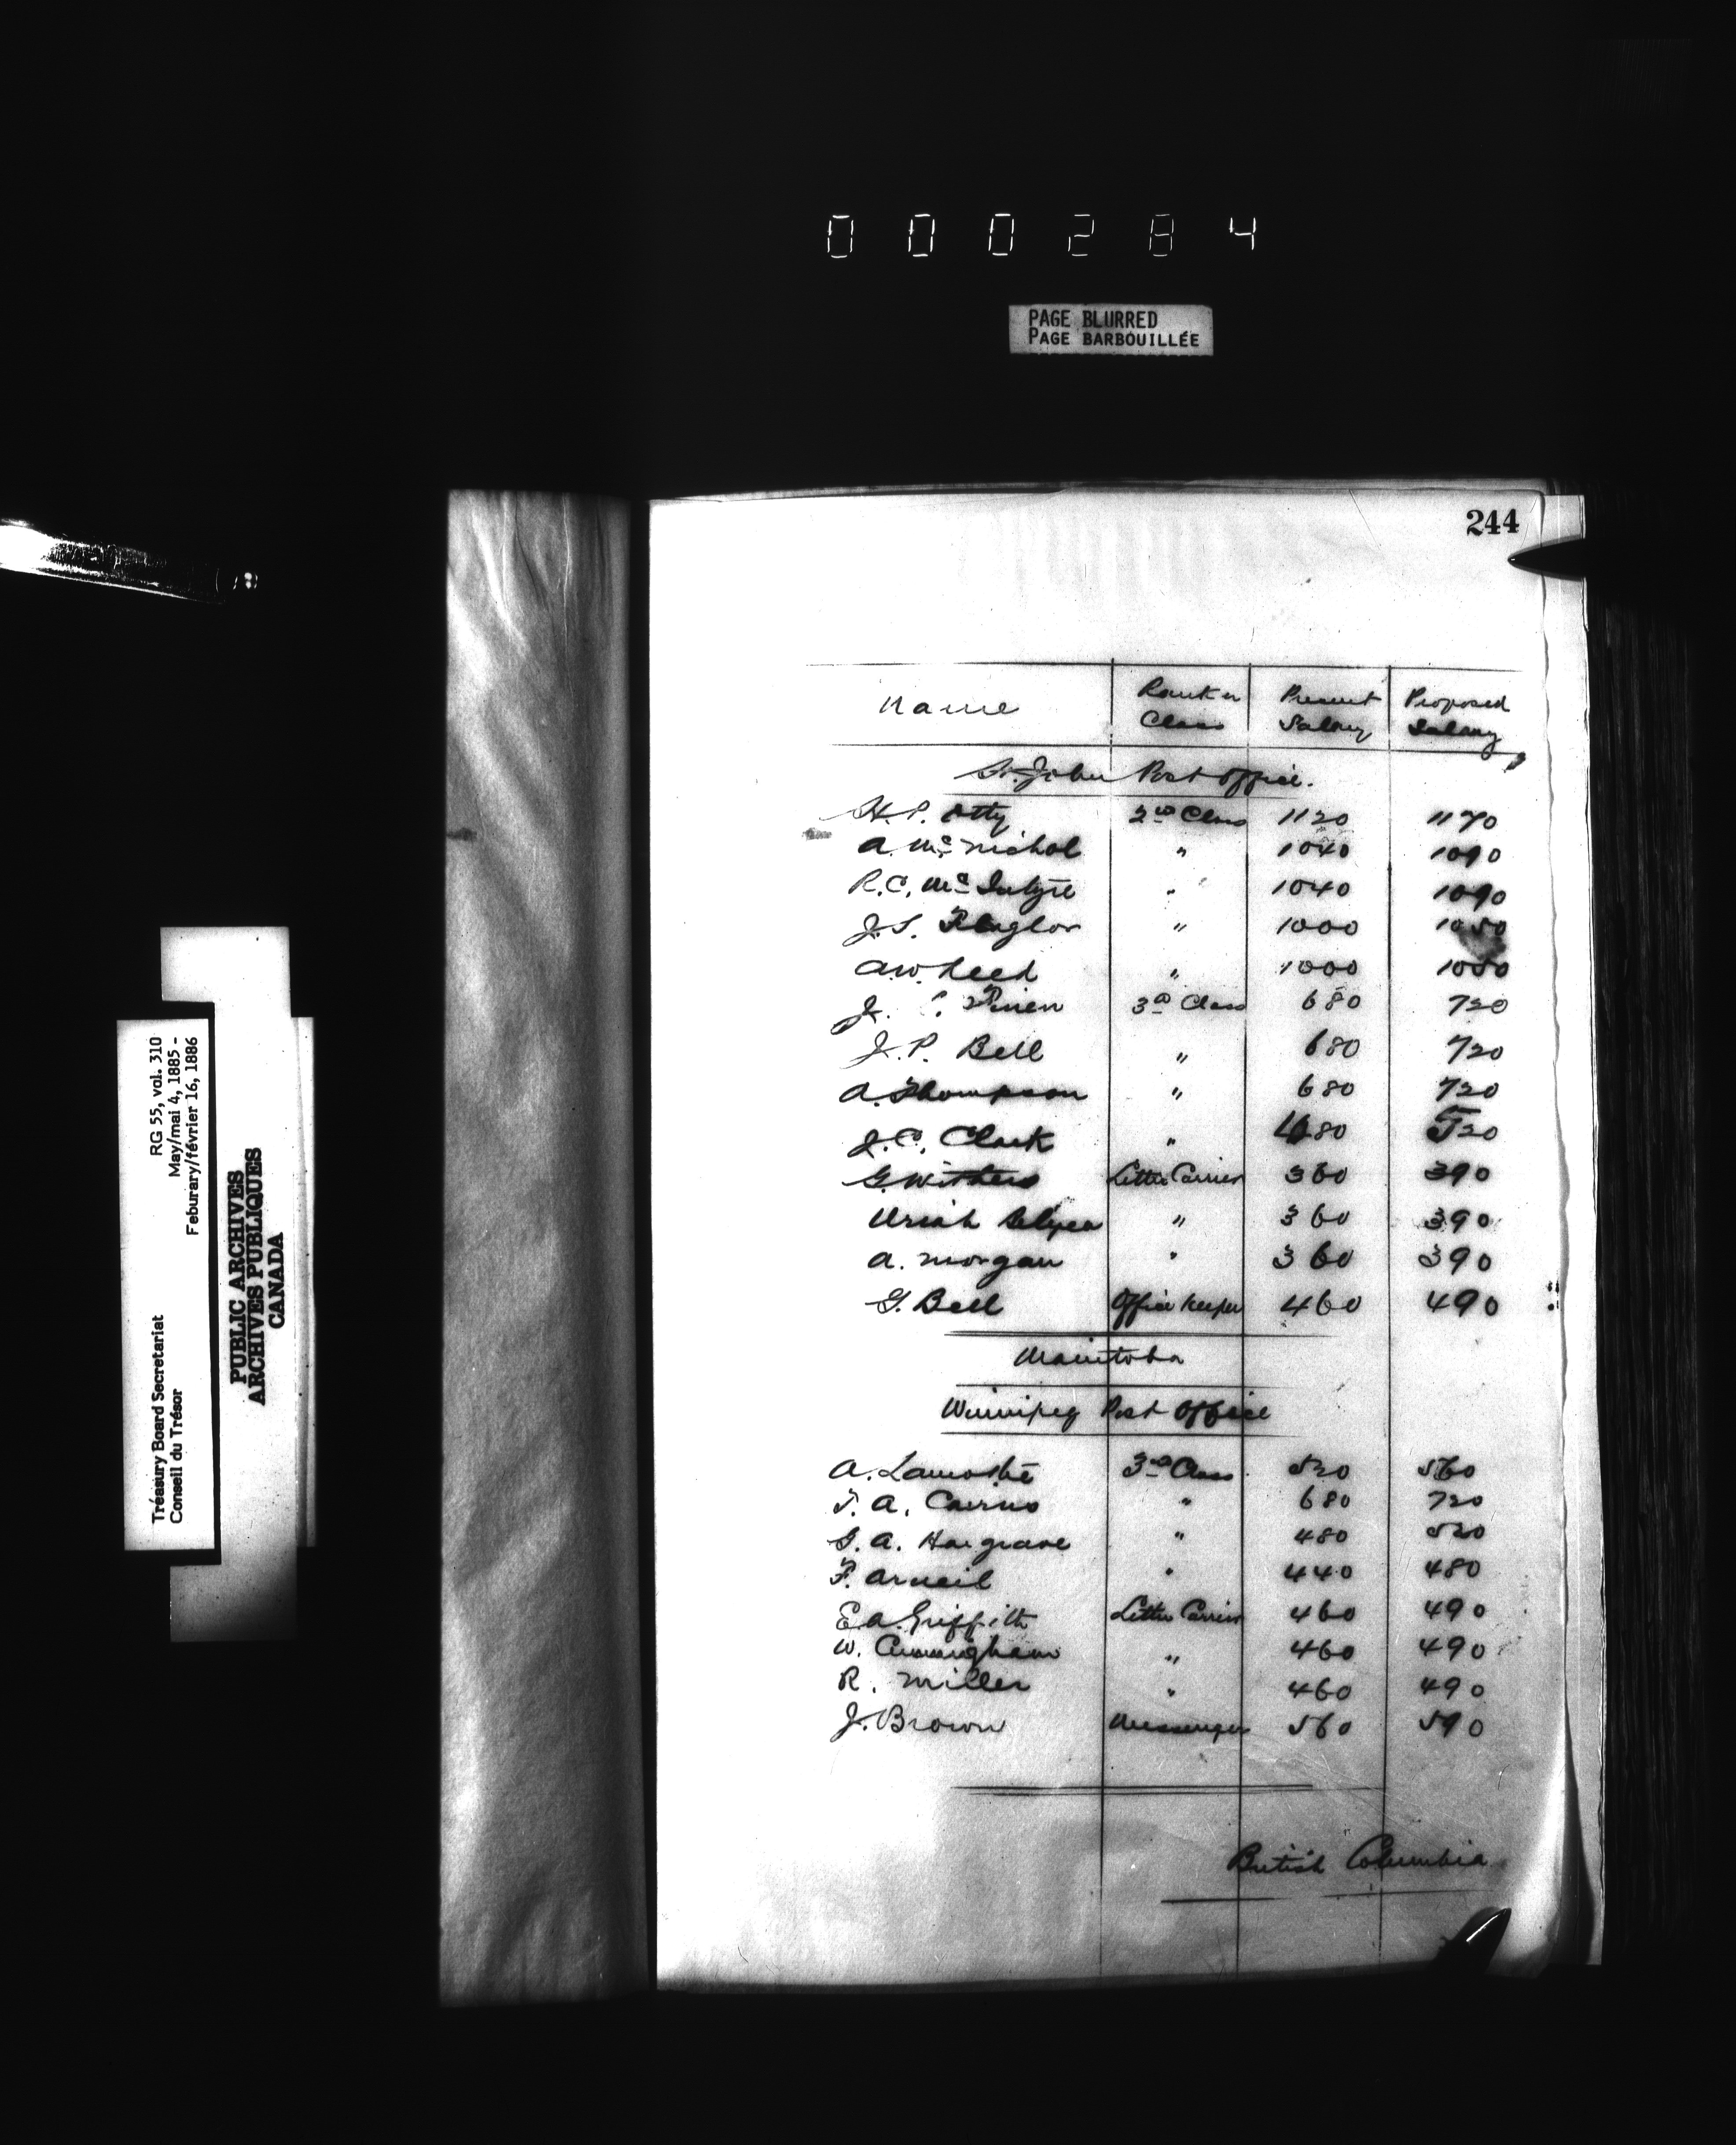 000284
PAGE BLURRED
PAGE BARBOUILLÉE
244
RG 55, vol. 310
May/mai 4, 1885 -
Feburary/février 16, 1886
Treasury Board Secretariat
Conseil du Trésor
PUBLIC ARCHIVES
ARCHIVES PUBLIQUES
CANADA
Name Rank or Class Present Salary Proposed Salary
St. John Post Office.
H.P. Otty 2nd Class 1120 1170
A. McNichol " 1040 1090
R.C. McIntyre " 1040 1090
J.S. " 1000 1050
A.W. Reed " 1000 1050
J. 3d Class 680 720
J.P. Bell " 680 720
A. Thompson " 680 720
J.C. Clark " 480 520
G. Withers Letter Carrier 360 390
Uriah Belyea " 360 390
A. Morgan " 360 390
G. Bell Office Keeper 460 490
Manitoba
Winnipeg Post Office
A. 3rd Class 520 560
T.A. Cairns " 680 720
G.A. Hargrave " 480 520
F. Arneil " 440 480
E.A. Griffith Letter Carrier 460 490
W. Cunningham " 460 490
R. Miller " 460 490
J. Brown Messenger 560 590
British Columbia